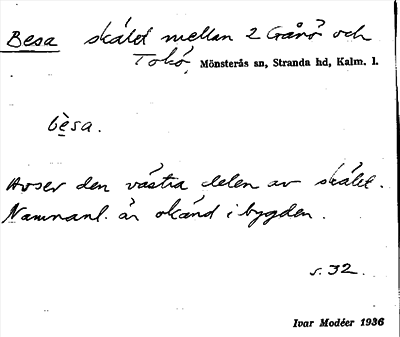 Besa skålet mellan 2 Gårö och
Tokö, Mönsterås sn, Stranda hd, Kalm. l.
bèsa.
Avser den västra delen av skålet.
Namnanl. är okänd i bygden.
s. 32.
Ivar Modéer 1936